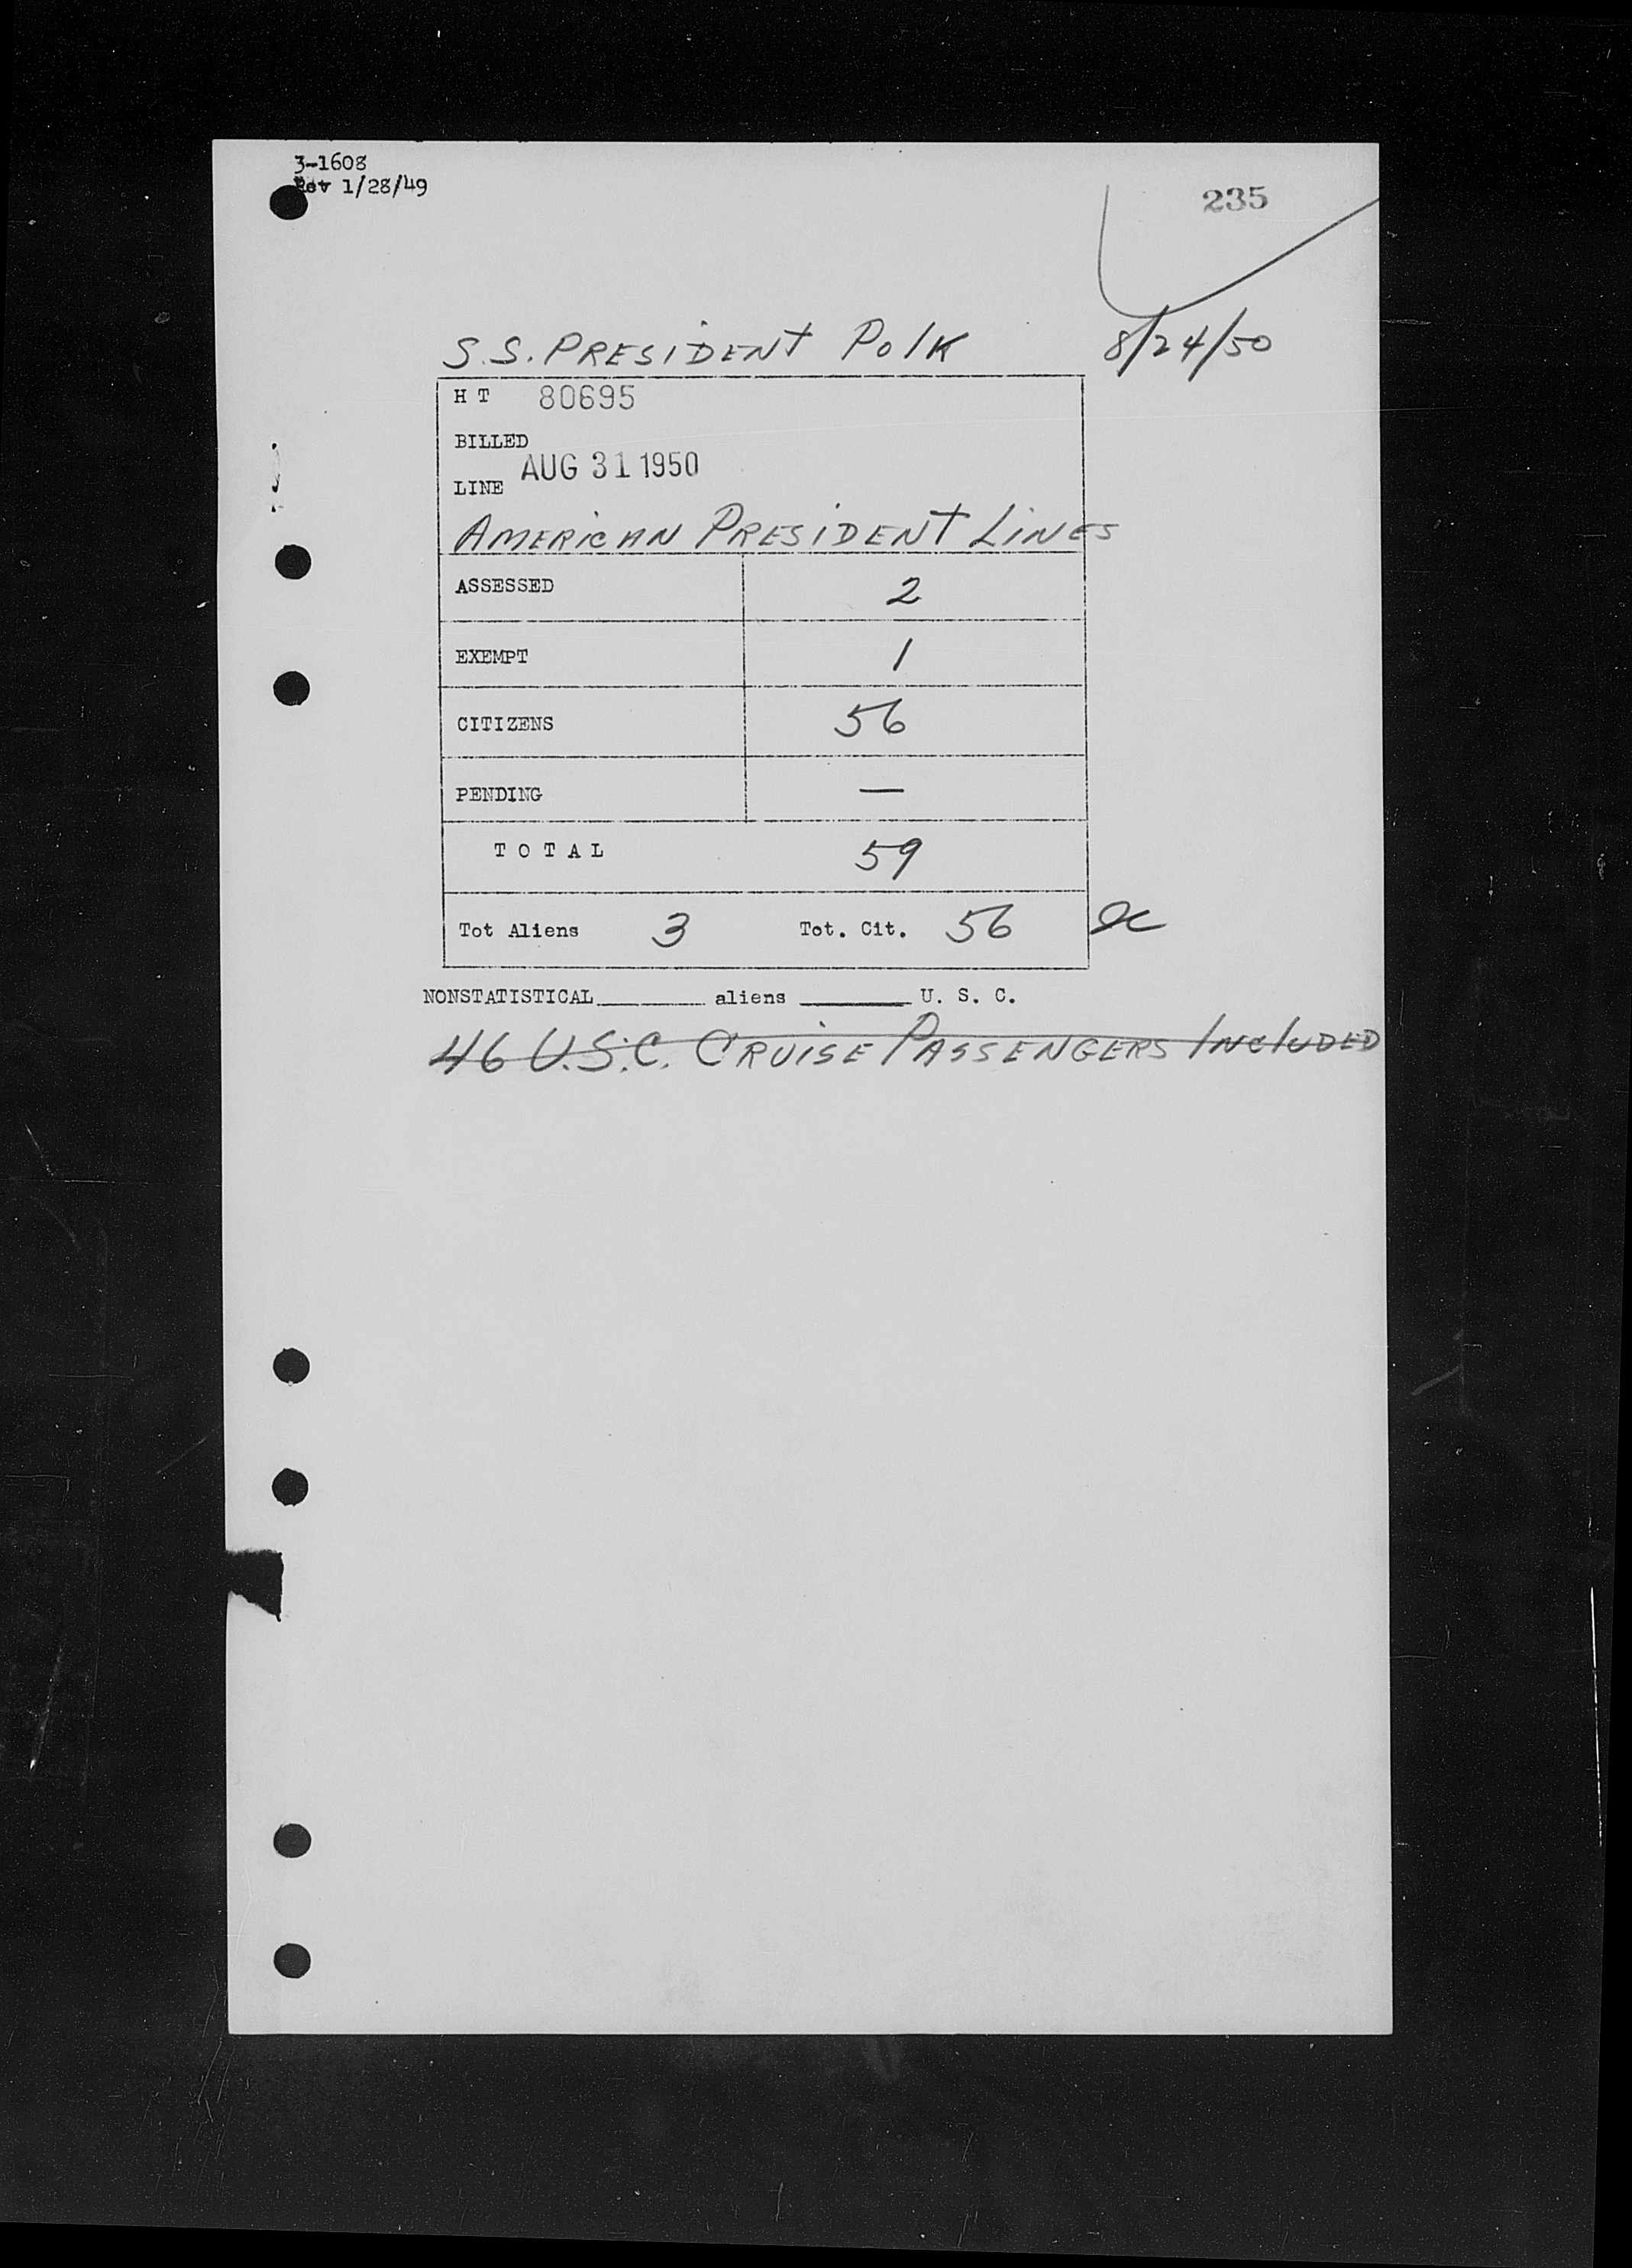 3-1608
Rev 1/28/49
235
S.S. PRESIDENT POlK 8/24/50
H T 80695
BILLED
AUG 31 1950
LINE
AMERICAN PRESIDENT LINES
ASSESSED 2
EXEMPT 1
CITIZENS 56
PENDING —
T O T A L 59
Tot Aliens 3 Tot. Cit. 56
NONSTATISTICAL________ aliens ________ U. S. C.
46 U.S.C. CRUISE PASSENGERS INCluDED